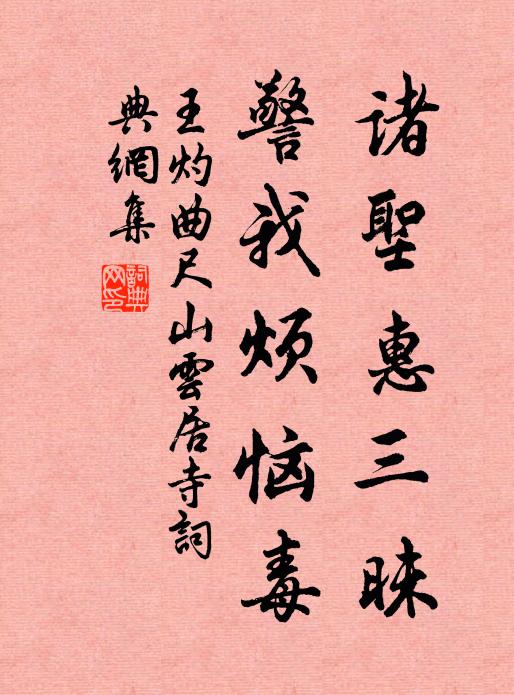 諸聖惠三昧
警我烦恼毒
王灼曲尺山雲居寺詞
典網集
詞典網印